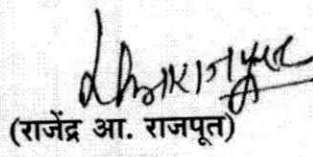 (राजेंद्र आ. राजपूत)